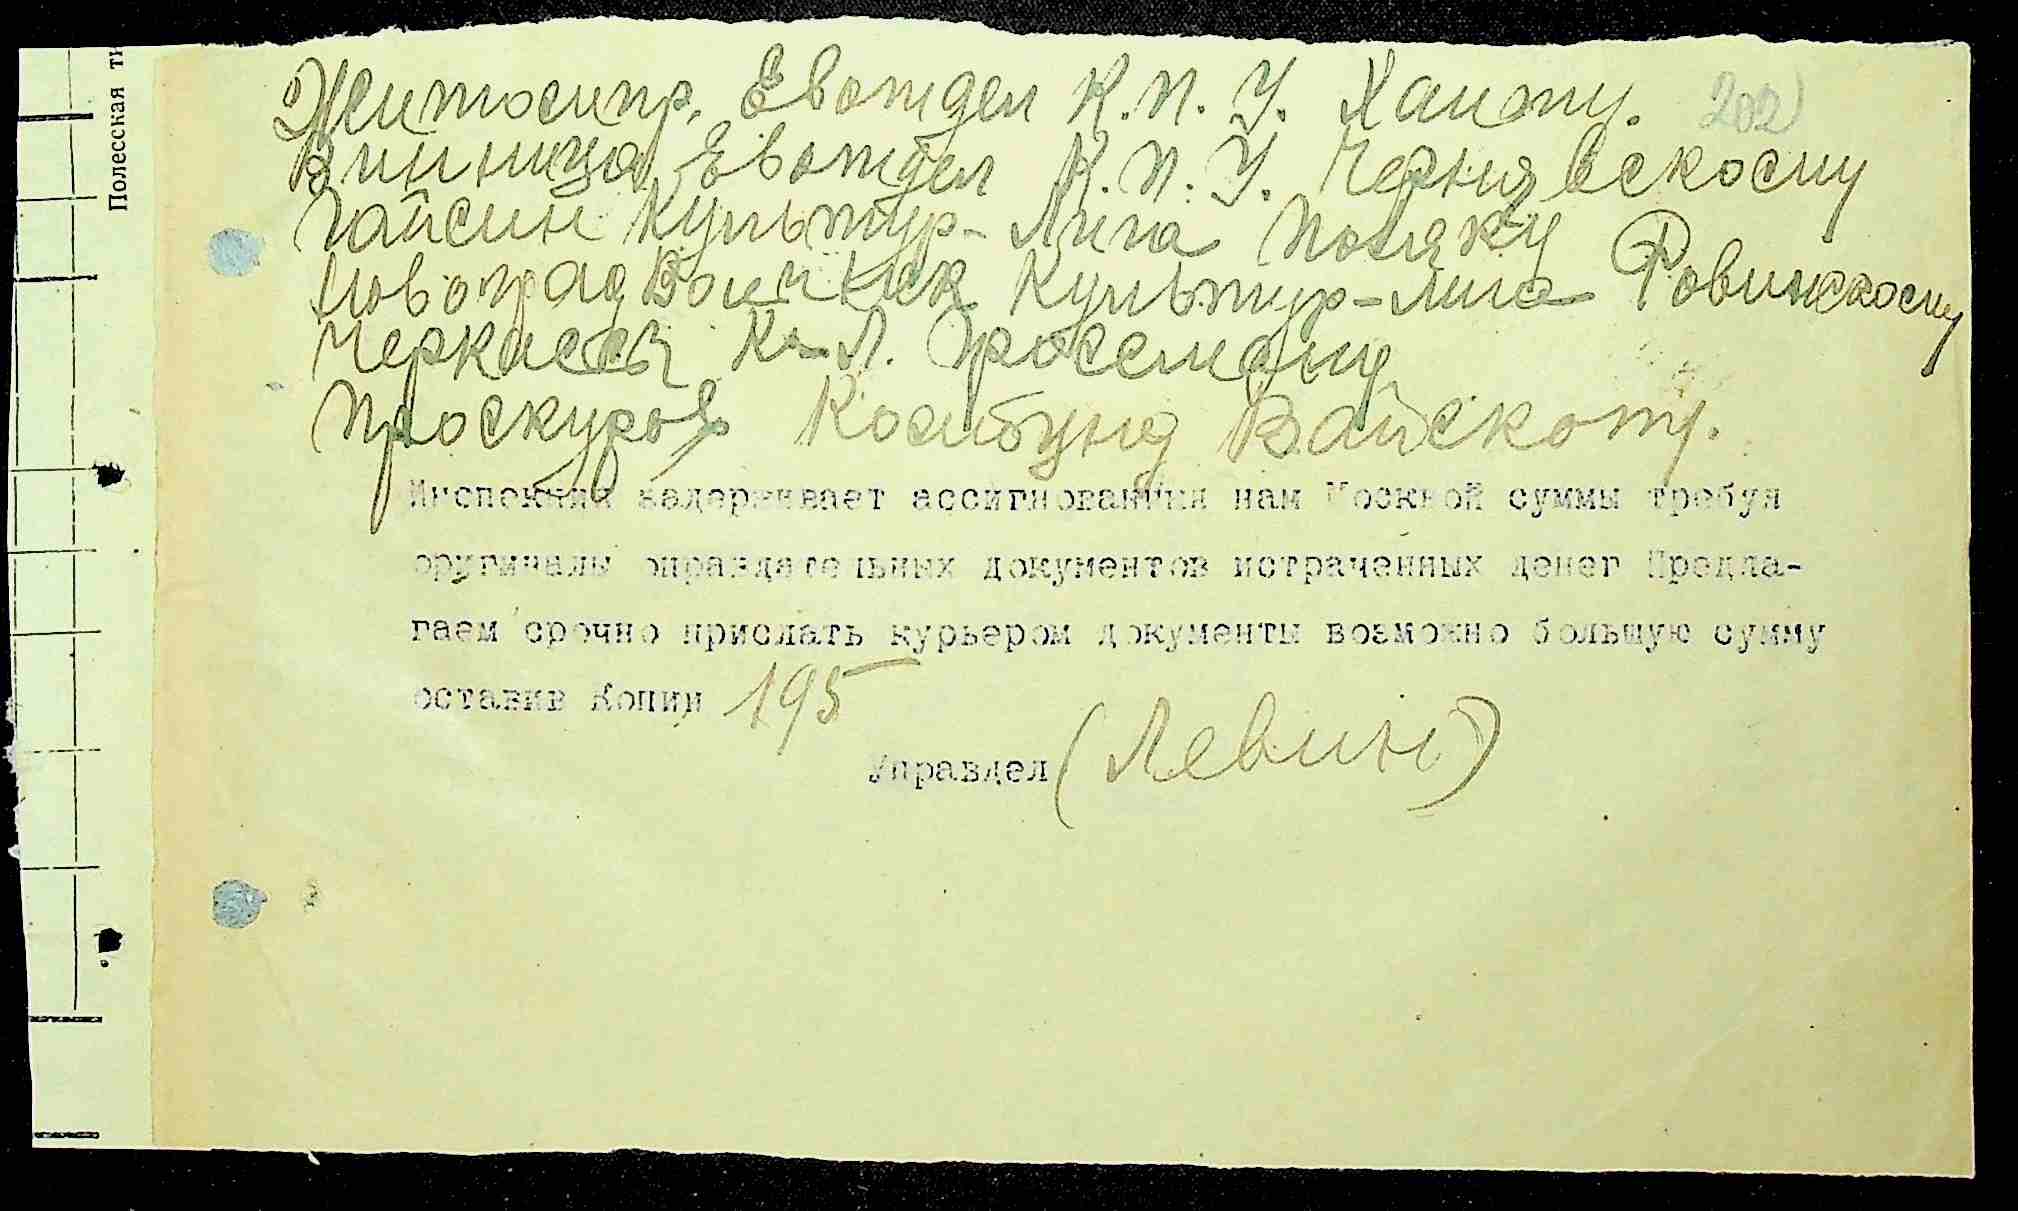 Полесская ти
202
Житомир. Евотдел К.П.У. Хаиту.
Винница Евотдел К.П.У. Чернявскому
Гайсин Культур-Лига Поляку
Новоград Волынск Культур-лига Ровинскому
Черкассы К-Л. Гроссману
Проскуров Комбунд Вайскопу.
Инспекция задерживает ассигнования нам Москвой суммы требуя
оригиналы оправдательных документов истраченных денег Предла-
гаем срочно прислать курьером документы возможно большую сумму
оставив Копии 195
Управдел (Левин)